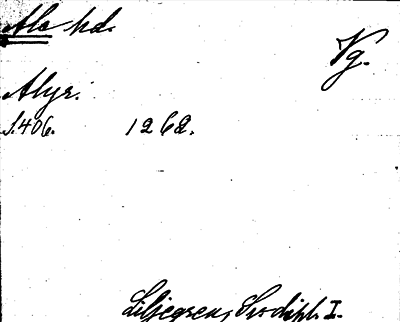 Ale hd.
Vg.
Alyr.
S. 406. 1262.
Liljegren, Sv. dipl. I.